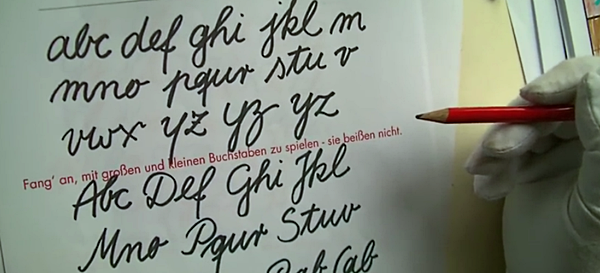 abc def ghi jkl m
mno pqur stu v
vwx yz yz yz
Fang' an, mit großen und kleinen Buchstaben zu spielen - sie beißen nicht.
Abc Def Ghi Jkl
Mno Pqur Stuv